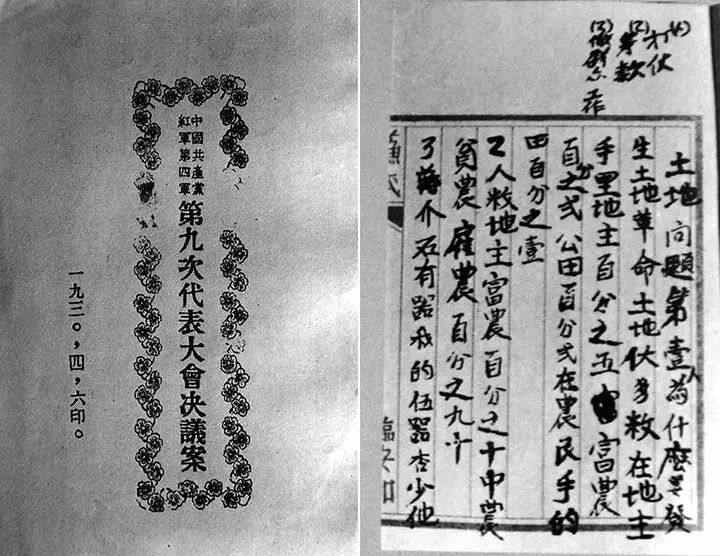 中國共產黨
紅軍第四軍
第九次代表大會决議案
一九三〇，四，六印。
(1)打伏
(2)款
(3)
土地問題第壹為什麼要發
生土地革命土地伏多数在地主
手里地主百分之五富農
百分之弍公田百分弍在農民手的
田百分之壹
工人敉地主富農百分之十中農
貧農雇農百分之九十
了蔣介石有器我的伍器少他